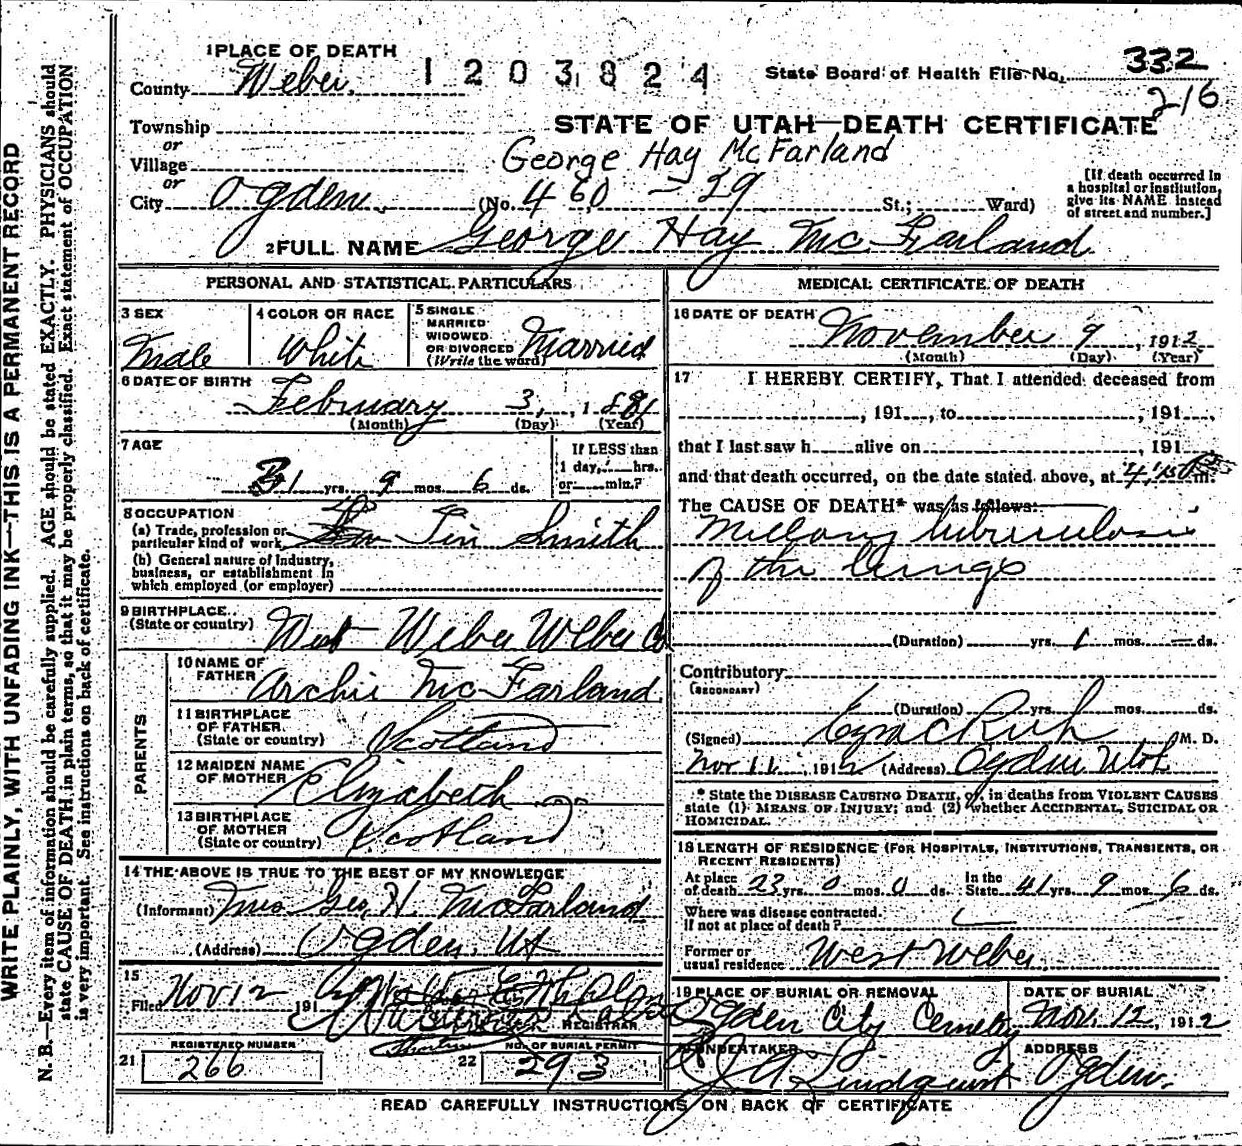 WRITE PLAINLY, WITH UNFADING INK—THIS IS A PERMANENT RECORD
N. B.—Every item of information should be carefully supplied. AGE should be stated EXACTLY. PHYSICIANS should
state CAUSE OF DEATH in plain terms, so that it may be properly classified. Exact statement of OCCUPATION
is very important. See instructions on back of certificate.
1 PLACE OF DEATH
County Weber.
1203824
State Board of Health File No. 332
216
Township
or
Village
or
STATE OF UTAH—DEATH CERTIFICATE
George Hay McFarland
City Ogden. (No. 460 - 29 St.; Ward)
[If death occurred in
a hospital or institution,
give its NAME instead
of street and number.]
2 FULL NAME George Hay McFarland
PERSONAL AND STATISTICAL PARTICULARS
3 SEX
Male
4 COLOR OR RACE
White
5 SINGLE
MARRIED
WIDOWED
OR DIVORCED
(Write the word)
Married
6 DATE OF BIRTH
February 3, 1881
(Month) (Day) (Year)
7 AGE
31 yrs. 9 mos. 6 ds.
If LESS than
1 day, hrs.
or min.?
8 OCCUPATION
(a) Trade, profession or
particular kind of work Tin Smith
(b) General nature of industry,
business, or establishment in
which employed (or employer)
9 BIRTHPLACE
(State or country) West Weber Weber Co
PARENTS
10 NAME OF
FATHER Archie McFarland
11 BIRTHPLACE
OF FATHER
(State or country) Scotland
12 MAIDEN NAME
OF MOTHER Elizabeth
13 BIRTHPLACE
OF MOTHER
(State or country) Scotland
14 THE ABOVE IS TRUE TO THE BEST OF MY KNOWLEDGE
(Informant) Mrs Geo. H. McFarland
(Address) Ogden, Ut
15
Filed Nov 12, 191
REGISTRAR
21 REGISTERED NUMBER
266
22 NO. OF BURIAL PERMIT
293
MEDICAL CERTIFICATE OF DEATH
16 DATE OF DEATH
November 9, 1912
(Month) (Day) (Year)
17 I HEREBY CERTIFY, That I attended deceased from
, 191 , to , 191 ,
that I last saw h alive on , 191
and that death occurred, on the date stated above, at 4:150 m.
The CAUSE OF DEATH* was as follows:
Miliary tuberculosis
of the lungs
(Duration) yrs. 1 mos. — ds.
Contributory
(SECONDARY)
(Duration) yrs. mos. ds.
(Signed) Ezra C Rich M. D.
Nov 11, 1912 (Address) Ogden Utah
* State the DISEASE CAUSING DEATH, or, in deaths from VIOLENT CAUSES
state (1) MEANS OF INJURY; and (2) whether ACCIDENTAL, SUICIDAL OR
HOMICIDAL.
18 LENGTH OF RESIDENCE (FOR HOSPITALS, INSTITUTIONS, TRANSIENTS, OR
RECENT RESIDENTS)
At place
of death 23 yrs. 0 mos. 0 ds.
In the
State 41 yrs. 9 mos. 6 ds.
Where was disease contracted.
If not at place of death?
Former or
usual residence West Weber
19 PLACE OF BURIAL OR REMOVAL
Ogden City Cemetery
DATE OF BURIAL
Nov. 12, 1912
UNDERTAKER
Lindquist
ADDRESS
Ogden.
READ CAREFULLY INSTRUCTIONS ON BACK OF CERTIFICATE